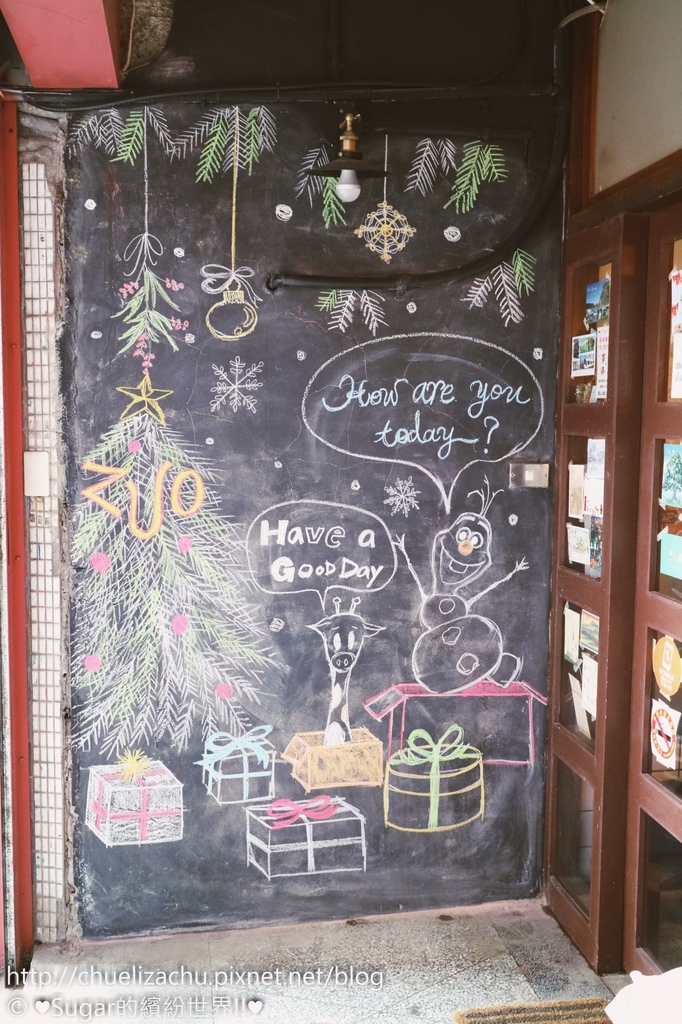 How are you
today?
Have a
Good Day
ZUO
http://chuelizachu.pixnet.net/blog
© ♥Sugar的繽紛世界!!♥